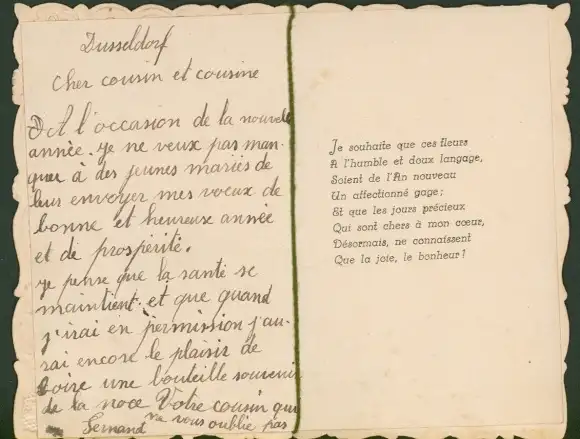 Dusseldorf
Cher cousin et cousine
A l'occasion de la nouvelle
année. je ne veux pas man-
quer à des jeunes mariés de
leur envoyer mes voeux de
bonne et heureuse année
et de prospérité.
je pense que la santé se
maintient et que quand
j'irai en permission j'au-
rai encore le plaisir de
boire une bouteille souvenir
de la noce Votre cousin qui
Fernand va vous oublie pas
Je souhaite que ces fleurs
A l'humble et doux langage,
Soient de l'An nouveau
Un affectionné gage;
Et que les jours précieux
Qui sont chers à mon cœur,
Désormais, ne connaissent
Que la joie, le bonheur!